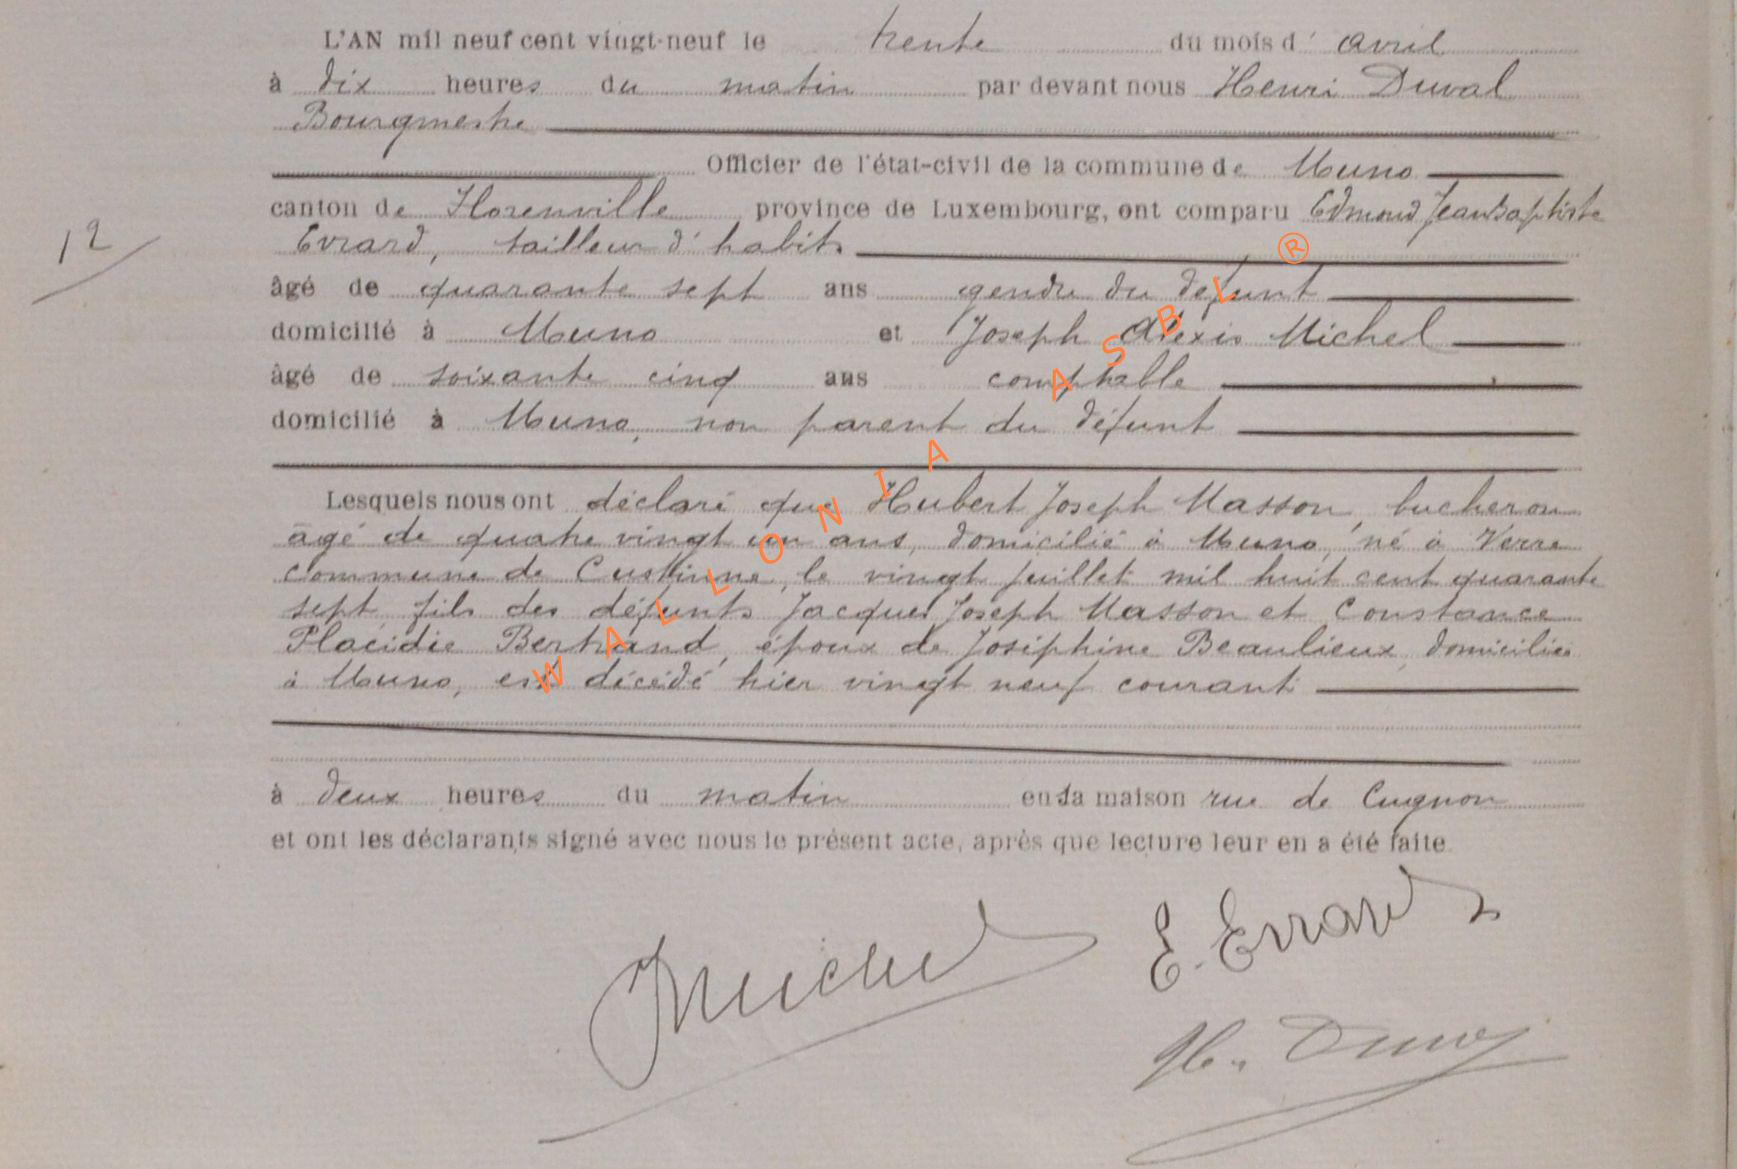 L'AN mil neuf cent vingt-neuf le trente du mois d' avril
à dix heures du matin par devant nous Henri Duval
Bourgmestre
Officier de l'état-civil de la commune de Muno
canton de Florenville province de Luxembourg, ont comparu Edmond Jean Baptiste
12
Evrard, tailleur d'habits
âgé de quarante sept ans gendre du défunt
domicilié à Muno et Joseph Alexis Michel
âgé de soixante cinq ans comptable
domicilié à Muno, non parent du défunt
Lesquels nous ont déclaré que Hubert Joseph Masson, bucheron
âgé de quatre vingt un ans, domicilié à Muno, né à Verre
commune de Custinne, le vingt juillet mil huit cent quarante
sept, fils des défunts Jacques Joseph Masson et Constance
Placidie Bertrand, époux de Joséphine Beaulieux, domiciliée
à Muno, est décédé hier vingt neuf courant
à deux heures du matin en sa maison rue de Cugnon
et ont les déclarants signé avec nous le présent acte, après que lecture leur en a été faite.
E. Evrard
JMichel
H. Duval
WALLONIA ASBL ®